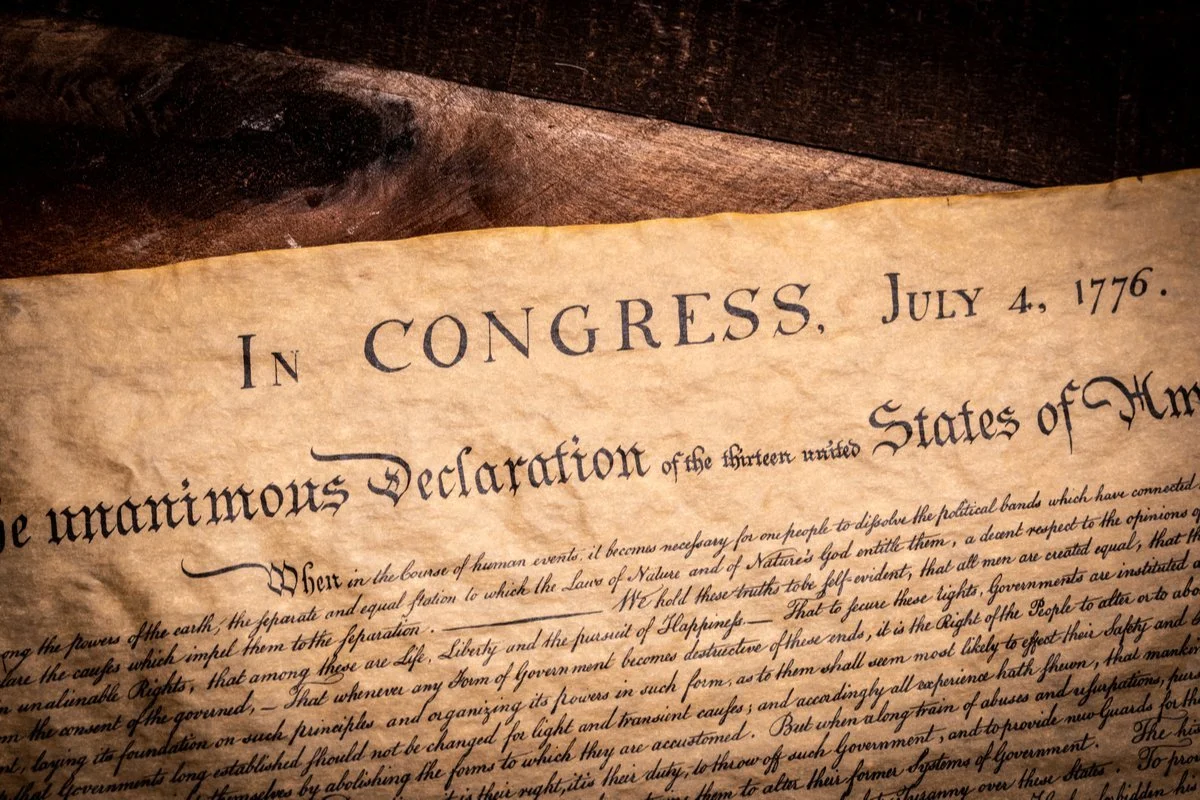 In CONGRESS, July 4, 1776.
he unanimous Declaration of the thirteen united States of Am
When in the Course of human events, it becomes necessary for one people to dissolve the political bands which have connected
ong the powers of the earth, the separate and equal station to which the Laws of Nature and of Nature's God entitle them, a decent respect to the opinions of
lare the causes which impel them to the separation. We hold these truths to be self-evident, that all men are created equal, that th
n unalienable Rights, that among these are Life, Liberty and the pursuit of Happiness.— That to secure these rights, Governments are instituted a
m the consent of the governed, — That whenever any Form of Government becomes destructive of these ends, it is the Right of the People to alter or to abo
nt, laying its foundation on such principles and organizing its powers in such form, as to them shall seem most likely to effect their Safety and
that Governments long established should not be changed for light and transient causes; and accordingly all experience hath shewn, that mankin
themselves by abolishing the forms to which they are accustomed. But when a long train of abuses and usurpations, pur
it is their right, it is their duty, to throw off such Government, and to provide new Guards for th
them to alter their former Systems of Government. The his
Tyranny over these States. To prov
forbidden his